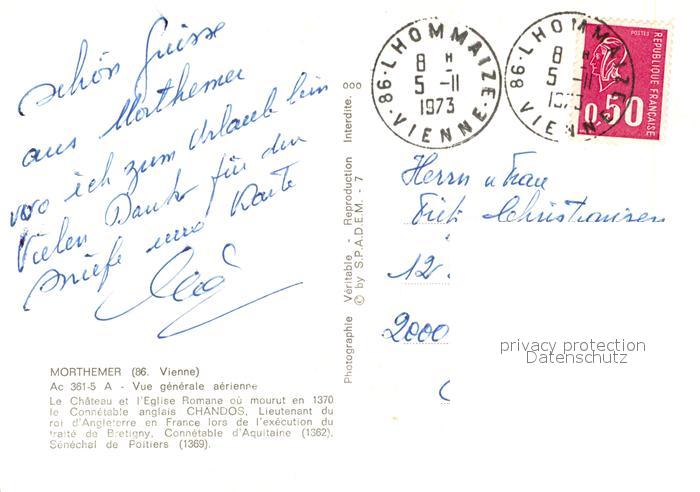 schön Grüsse
aus Morthemer
wo ich zum Urlaub bin
Vielen Dank für den
und Karte
MORTHEMER (86. Vienne)
Ac 361-5 A - Vue générale aérienne
Le Château et l'Eglise Romane où mourut en 1370
le Connétable anglais CHANDOS, Lieutenant du
roi d'Angleterre en France lors de l'exécution du
traité de Bretigny, Connétable d'Aquitaine (1362),
Sénéchal de Poitiers (1369).
Photographie Véritable - Reproduction Interdite. 000
© by S.P.A.D.E.M. - 7
86-LHOMMAIZE
8 H
5 -11
1973
VIENNE
86-LHOMMAIZE
8 H
5 -11
1973
VIENNE
POSTES
REPUBLIQUE FRANÇAISE
0,50
Herrn u Frau
Christiansen
12
2000
privacy protection
Datenschutz